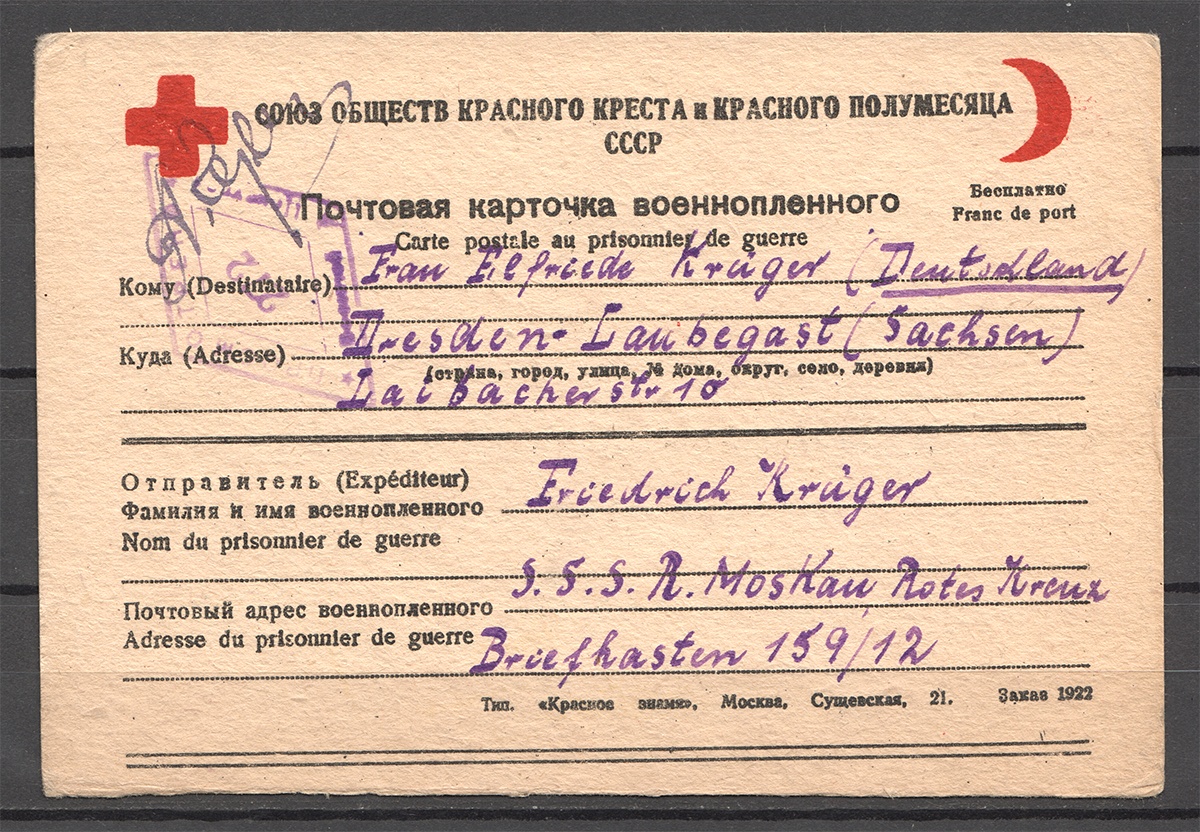 СОЮЗ ОБЩЕСТВ КРАСНОГО КРЕСТА и КРАСНОГО ПОЛУМЕСЯЦА
СССР
Почтовая карточка военнопленного
Бесплатно
Franc de port
Carte postale au prisonnier de guerre
Кому (Destinataire) Frau Elfriede Krüger (Deutschland)
Куда (Adresse) Dresden-Laubegast (Sachsen)
(страна, город, улица, № дома, округ, село, деревня)
Laibacherstr 10
Отправитель (Expéditeur)
Фамилия и имя военнопленного Friedrich Krüger
Nom du prisonnier de guerre
S.S.S.R. Moskau Rotes Kreuz
Почтовый адрес военнопленного
Adresse du prisonnier de guerre Briefkasten 159/12
Тип. «Красное знамя», Москва, Сущевская, 21. Заказ 1922